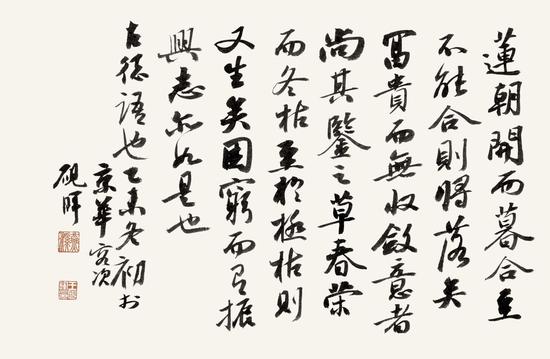 蓮朝開而暮合至
不能合則將落矣
冨貴而無收斂意者
尚其鑒之草春榮
而冬枯至於極枯則
又生矣困窮而有振
興志亦如是也
古德語也乙未冬初於
京華客次
硯暉